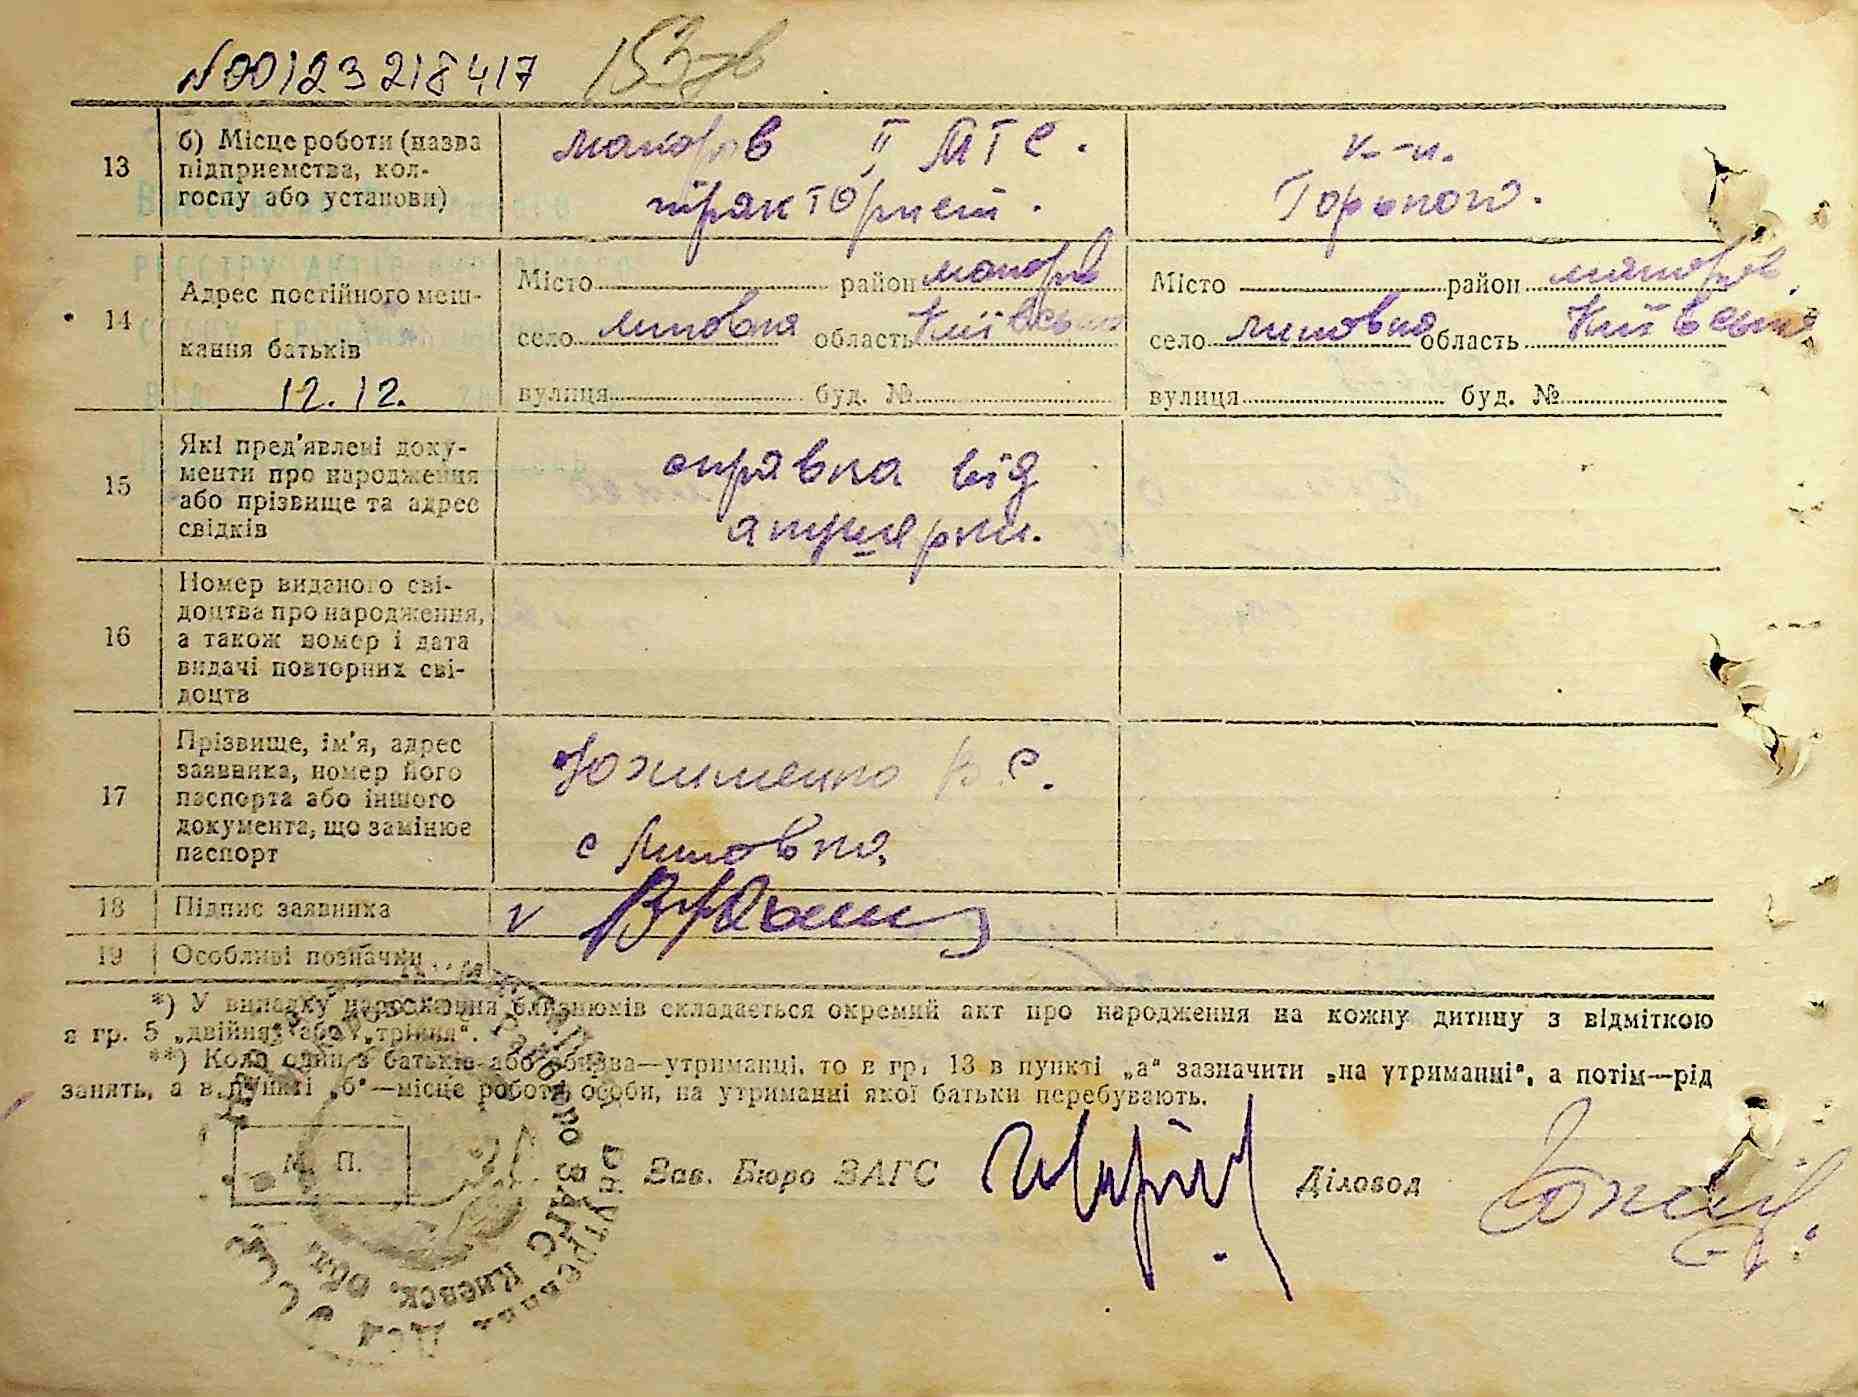 №00123218417
13 б) Місце роботи (назва підприємства, колгоспу або установи)
макорів II МТС.
тракторист.
к-п.
Горького.
14 Адрес постійного мешкання батьків
12.12.
Місто район макорів
село липовка область Київська
вулиця буд. №
Місто район макорів
село липовка область Київська
вулиця буд. №
15 Які пред'явлені документи про народження або прізвище та адрес свідків
справка від
акушерки.
16 Номер виданого свідоцтва про народження, а також номер і дата видачі повторних свідоцтв
17 Прізвище, ім'я, адрес заявника, номер його паспорта або іншого документа, що замінює паспорт
Юхименко В.С.
с Липовка.
18 Підпис заявника
v
19 Особливі позначки
*) У випадку народження близнюків складається окремий акт про народження на кожну дитину з відміткою
в гр. 5 „двійня" або „трійня".
**) Коли один з батьків або обидва—утриманці, то в гр. 13 в пункті „а" зазначити „на утриманні", а потім—рід
занять, а в пункті „б"—місце роботи особи, на утриманні якої батьки перебувають.
М. П.
Зав. Бюро ЗАГС
Діловод
Бюро ЗАГС Киевск. обл.